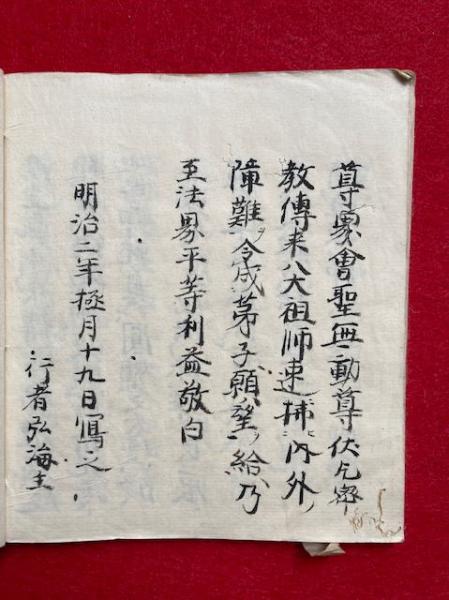 尊界會聖無動尊伏乞密
教傳来八大祖師速拂内外
障難ヲ令成弟子願望ヲ給乃
至法界平等利益敬白
明治二年極月十九日寫之
行者弘海主